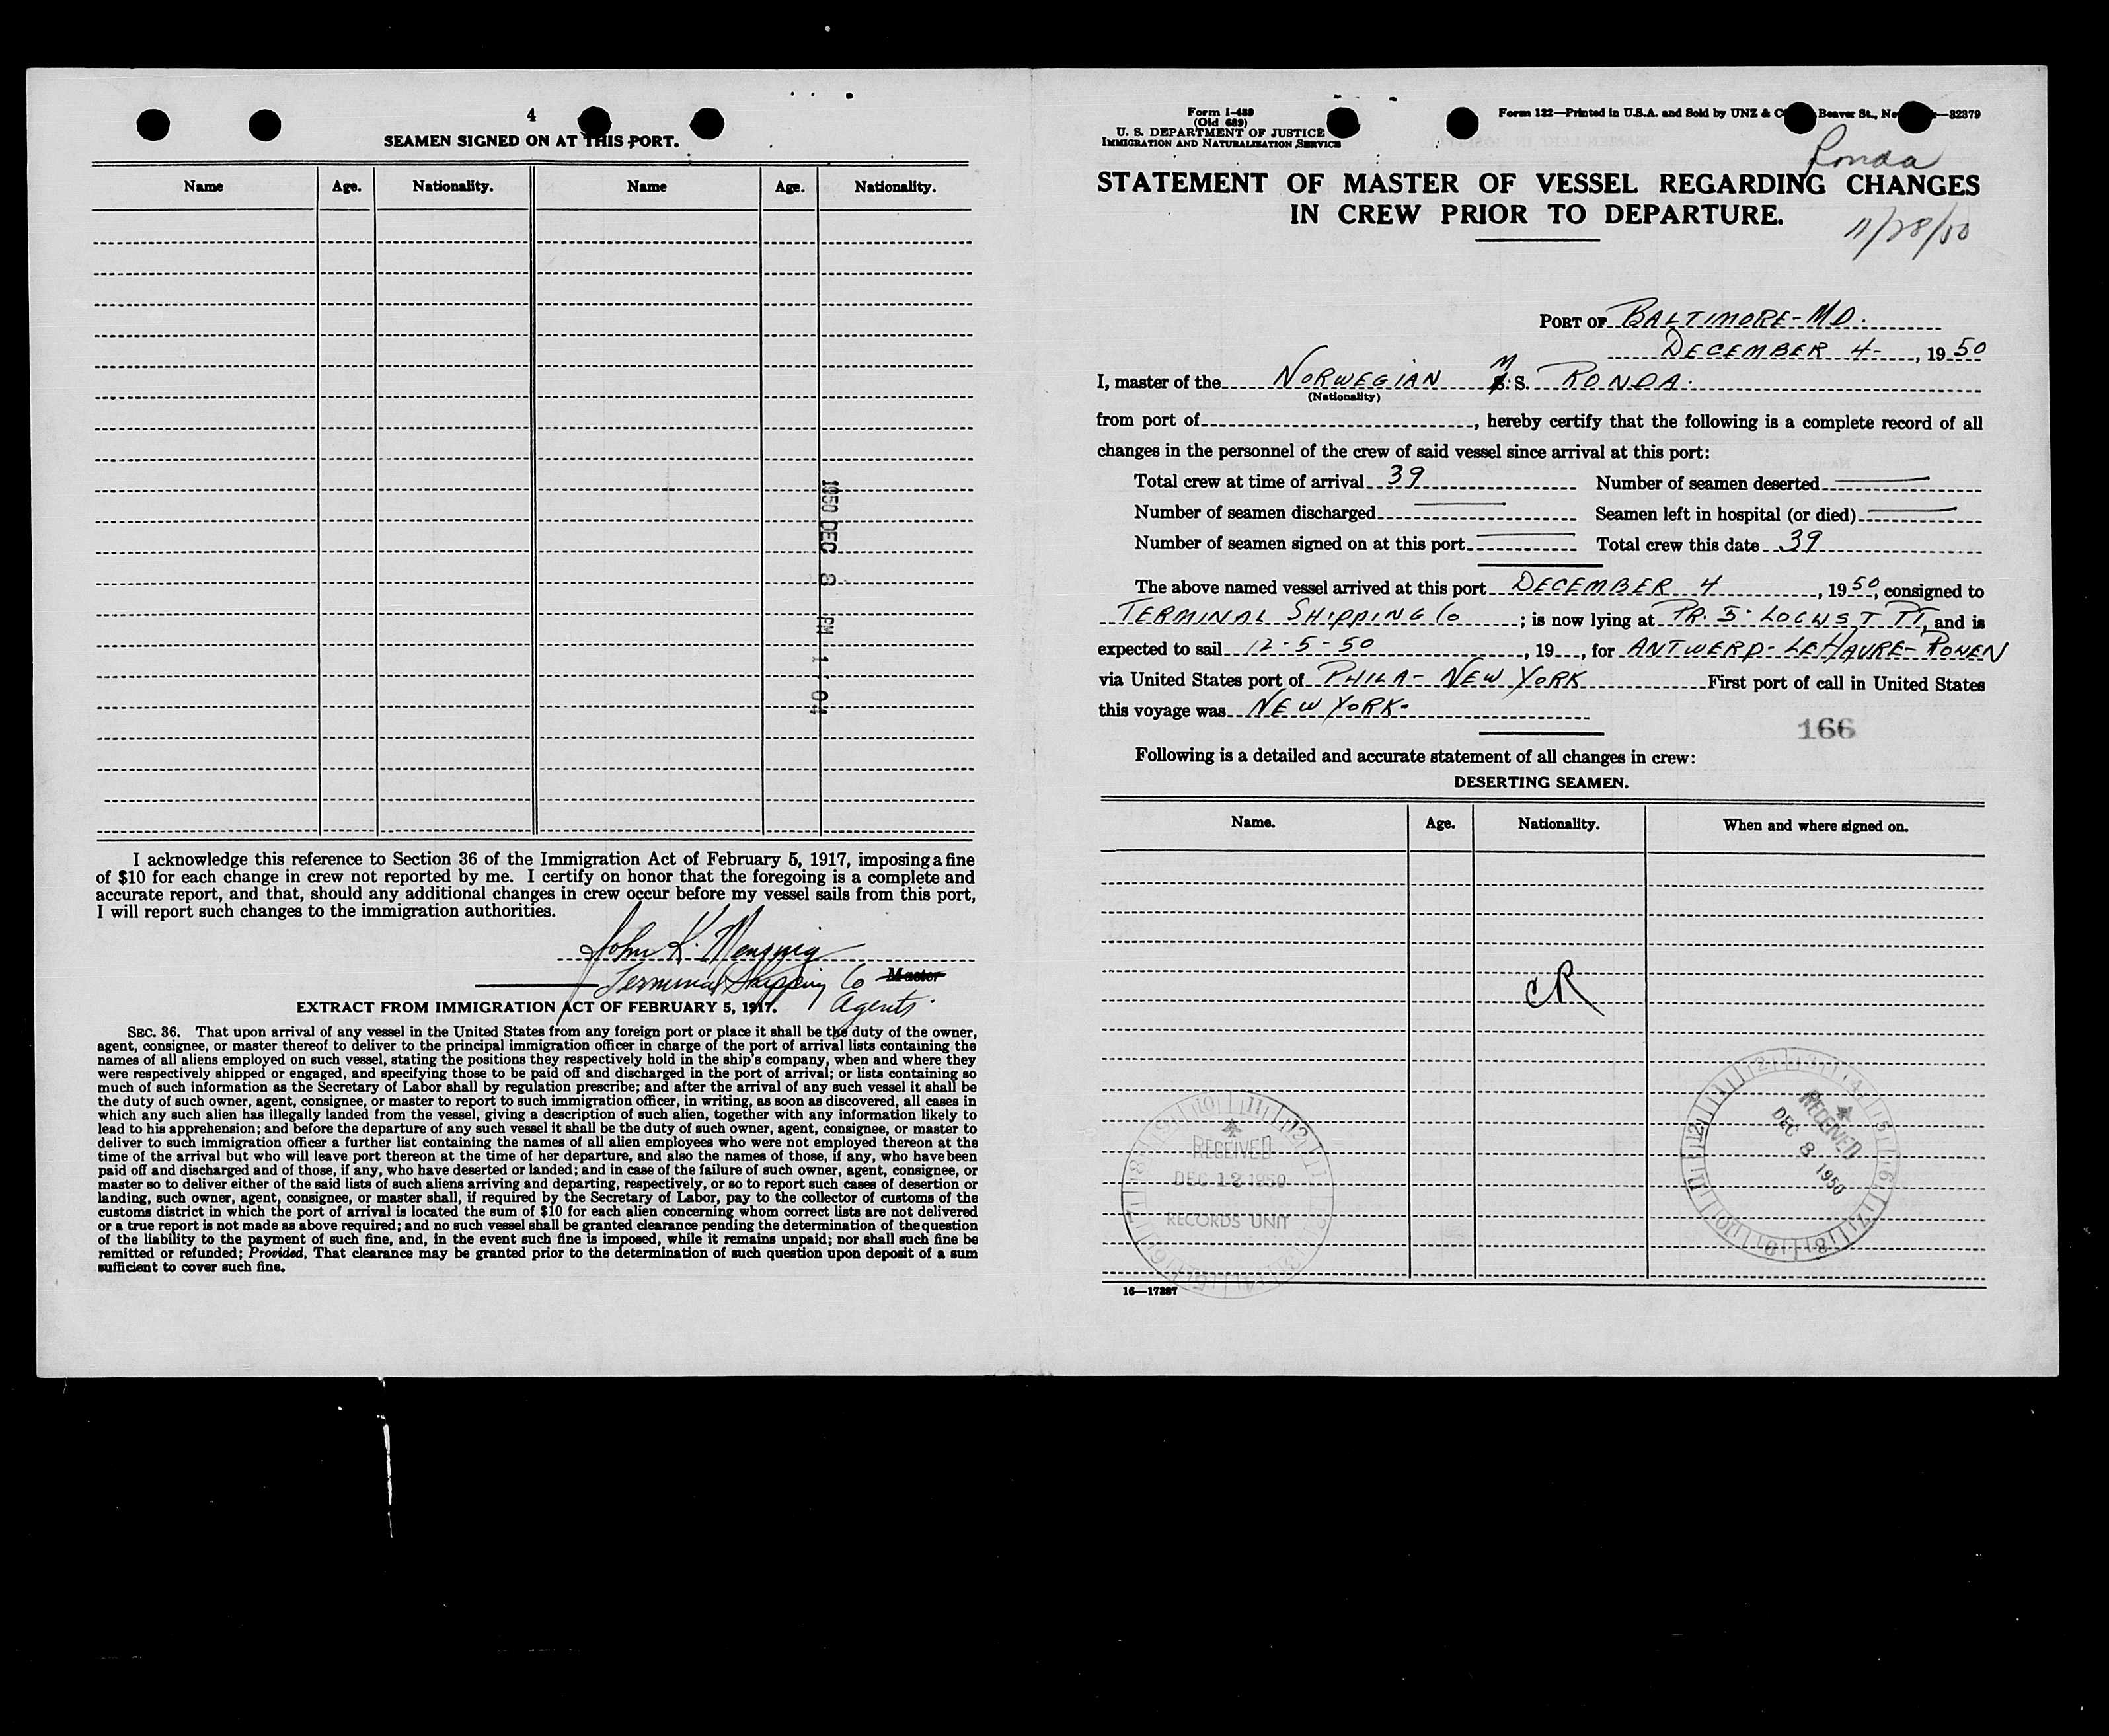 4
SEAMEN SIGNED ON AT THIS PORT.
Name Age. Nationality. Name Age. Nationality.
1950 DEC 8 PM 1 04
I acknowledge this reference to Section 36 of the Immigration Act of February 5, 1917, imposing a fine
of $10 for each change in crew not reported by me. I certify on honor that the foregoing is a complete and
accurate report, and that, should any additional changes in crew occur before my vessel sails from this port,
I will report such changes to the immigration authorities.
John K.
Terminal Shipping Co Master
Agents
EXTRACT FROM IMMIGRATION ACT OF FEBRUARY 5, 1917.
SEC. 36. That upon arrival of any vessel in the United States from any foreign port or place it shall be the duty of the owner,
agent, consignee, or master thereof to deliver to the principal immigration officer in charge of the port of arrival lists containing the
names of all aliens employed on such vessel, stating the positions they respectively hold in the ship's company, when and where they
were respectively shipped or engaged, and specifying those to be paid off and discharged in the port of arrival; or lists containing so
much of such information as the Secretary of Labor shall by regulation prescribe; and after the arrival of any such vessel it shall be
the duty of such owner, agent, consignee, or master to report to such immigration officer, in writing, as soon as discovered, all cases in
which any such alien has illegally landed from the vessel, giving a description of such alien, together with any information likely to
lead to his apprehension; and before the departure of any such vessel it shall be the duty of such owner, agent, consignee, or master to
deliver to such immigration officer a further list containing the names of all alien employees who were not employed thereon at the
time of the arrival but who will leave port thereon at the time of her departure, and also the names of those, if any, who have been
paid off and discharged and of those, if any, who have deserted or landed; and in case of the failure of such owner, agent, consignee, or
master so to deliver either of the said lists of such aliens arriving and departing, respectively, or so to report such cases of desertion or
landing, such owner, agent, consignee, or master shall, if required by the Secretary of Labor, pay to the collector of customs of the
customs district in which the port of arrival is located the sum of $10 for each alien concerning whom correct lists are not delivered
or a true report is not made as above required; and no such vessel shall be granted clearance pending the determination of the question
of the liability to the payment of such fine, and, in the event such fine is imposed, while it remains unpaid; nor shall such fine be
remitted or refunded; Provided, That clearance may be granted prior to the determination of such question upon deposit of a sum
sufficient to cover such fine.
Form I-489
(Old 689)
U. S. DEPARTMENT OF JUSTICE
IMMIGRATION AND NATURALIZATION SERVICE
Form 122—Printed in U.S.A. and Sold by UNZ & C Beaver St., Ne —32379
Ronda
STATEMENT OF MASTER OF VESSEL REGARDING CHANGES
IN CREW PRIOR TO DEPARTURE.
11/28/50
PORT OF BALTIMORE-MD.
DECEMBER 4-, 1950
I, master of the NORWEGIAN M S. S. RONDA.
(Nationality)
from port of , hereby certify that the following is a complete record of all
changes in the personnel of the crew of said vessel since arrival at this port:
Total crew at time of arrival 39 Number of seamen deserted
Number of seamen discharged Seamen left in hospital (or died)
Number of seamen signed on at this port Total crew this date 39
The above named vessel arrived at this port DECEMBER 4, 1950, consigned to
TERMINAL SHIPPING Co; is now lying at PR. 5- LOCUST PT, and is
expected to sail 12-5-50, 19 , for ANTWERP-LEHAVRE-ROUEN
via United States port of PHILA- NEW YORK First port of call in United States
this voyage was NEW YORK-
166
Following is a detailed and accurate statement of all changes in crew:
DESERTING SEAMEN.
Name. Age. Nationality. When and where signed on.
CR
RECEIVED
DEC 12 1950
RECORDS UNIT
RECEIVED
DEC 8 1950
16—17387